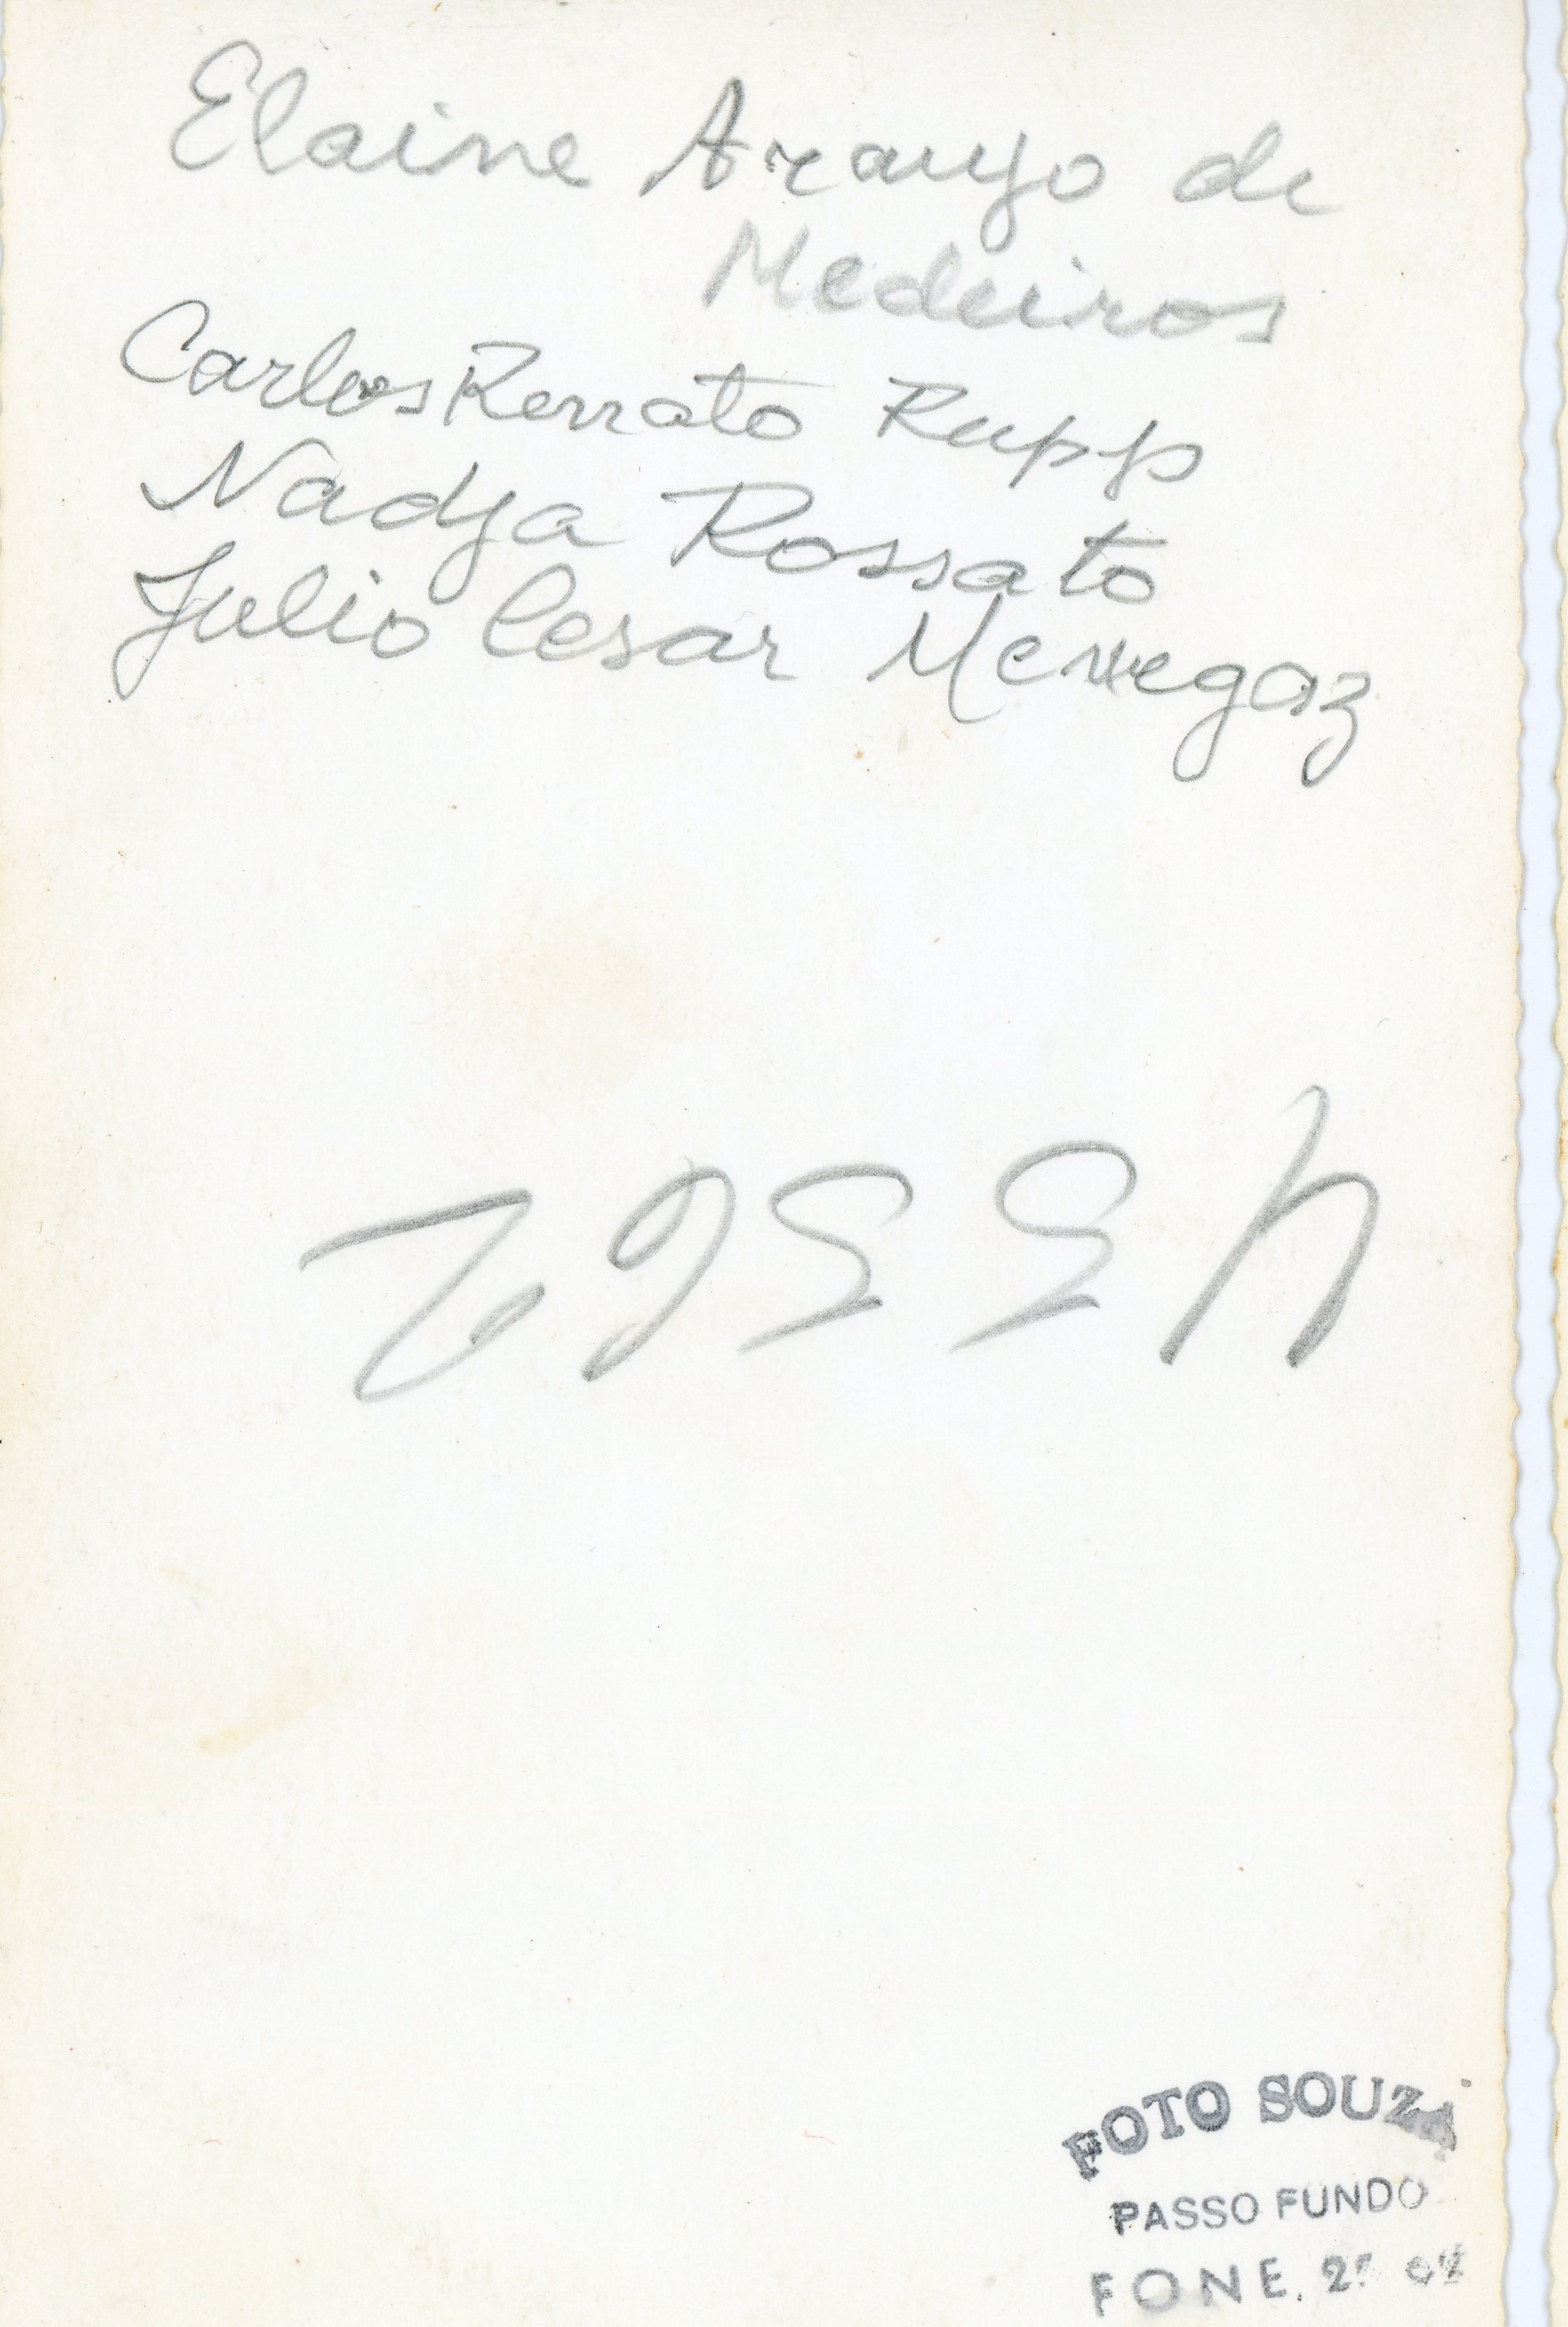 Elaine Araujo de
Medeiros
Carlos Renato Rupp
Nadja Rossato
Julio Cesar Menegaz
45562
FOTO SOUZA
PASSO FUNDO
FONE.